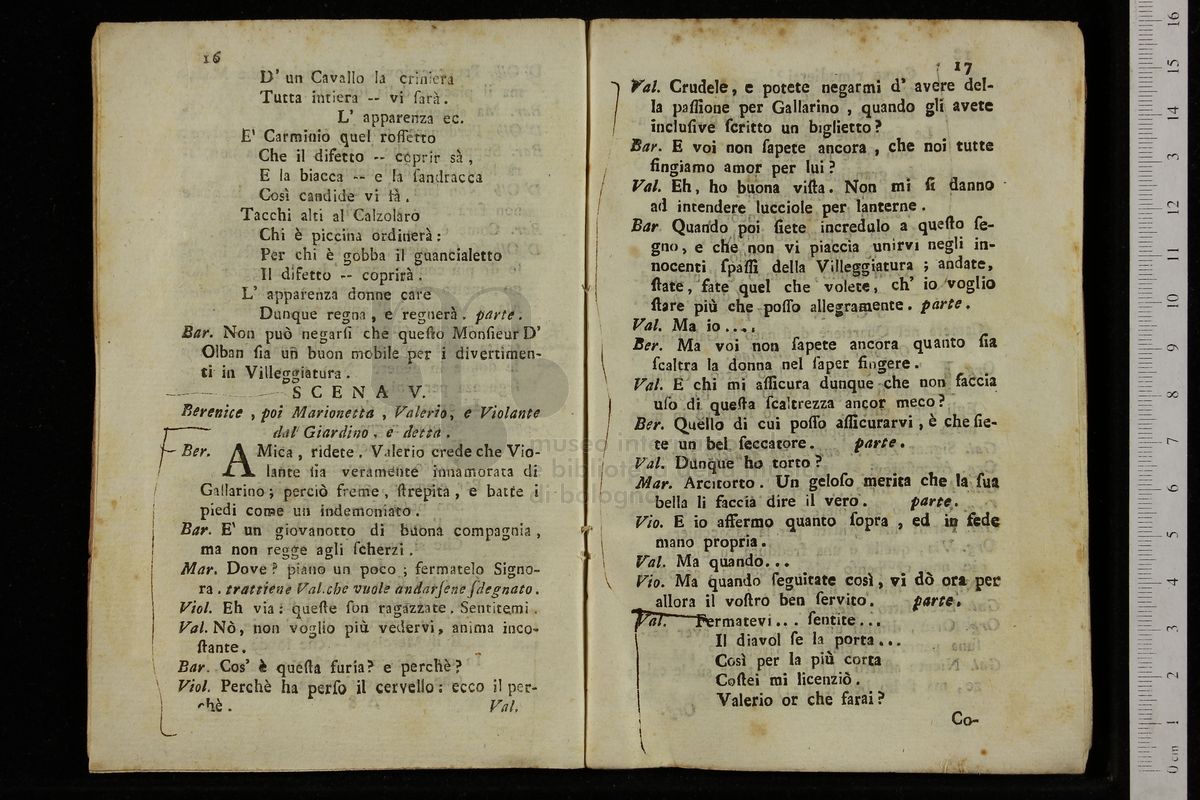 16
D' un Cavallo la criniera
Tutta intiera -- vi ſarà.
L' apparenza ec.
E' Carminio quel roſſetto
Che il difetto -- coprir sà,
E la biacca -- e la ſandracca
Così candide vi fà.
Tacchi alti al Calzolaro
Chi è piccina ordinerà:
Per chi è gobba il guancialetto
Il difetto -- coprirà.
L' apparenza donne care
Dunque regna, e regnerà. parte.
Bar. Non può negarſi che queſto Monſieur D'
Olban ſia un buon mobile per i divertimen-
ti in Villeggiatura.
SCENA V.
Berenice, poi Marionetta, Valerio, e Violante
dal Giardino, e detta.
Ber. AMica, ridete. Valerio crede che Vio-
lante ſia veramente innamorata di
Gallarino; perciò freme, ſtrepita, e batte i
piedi come un indemoniato.
Bar. E' un giovanotto di buona compagnia,
ma non regge agli ſcherzi.
Mar. Dove? piano un poco; fermatelo Signo-
ra. trattiene Val. che vuole andarſene ſdegnato.
Viol. Eh via: queſte ſon ragazzate. Sentitemi.
Val. Nò, non voglio più vedervi, anima inco-
ſtante.
Bar. Cos' è queſta furia? e perchè?
Viol. Perchè ha perſo il cervello: ecco il per-
chè. Val.
17
Val. Crudele, e potete negarmi d' avere del-
la paſſione per Gallarino, quando gli avete
incluſive ſcritto un biglietto?
Bar. E voi non ſapete ancora, che noi tutte
fingiamo amor per lui?
Val. Eh, ho buona viſta. Non mi ſi danno
ad intendere lucciole per lanterne.
Bar Quando poi ſiete incredulo a queſto ſe-
gno, e che non vi piaccia unirvi negli in-
nocenti ſpaſſi della Villeggiatura; andate,
ſtate, fate quel che volete, ch' io voglio
ſtare più che poſſo allegramente. parte.
Val. Ma io....
Ber. Ma voi non ſapete ancora quanto ſia
ſcaltra la donna nel ſaper fingere.
Val. E chi mi aſſicura dunque che non faccia
uſo di queſta ſcaltrezza ancor meco?
Ber. Quello di cui poſſo aſſicurarvi, è che ſie-
te un bel ſeccatore. parte.
Val. Dunque ho torto?
Mar. Arcitorto. Un geloſo merita che la ſua
bella li faccia dire il vero. parte.
Vio. E io affermo quanto ſopra, ed in fede
mano propria.
Val. Ma quando...
Vio. Ma quando ſeguitate così, vi dò ora per
allora il voſtro ben ſervito. parte.
Val. Fermatevi... ſentite...
Il diavol ſe la porta...
Così per la più corta
Coſtei mi licenziò.
Valerio or che farai?
Co-